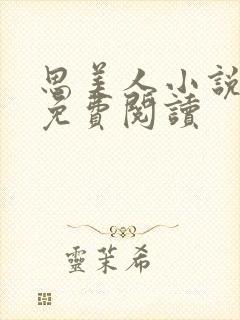 思美人小說
免費閱讀
靈茉希